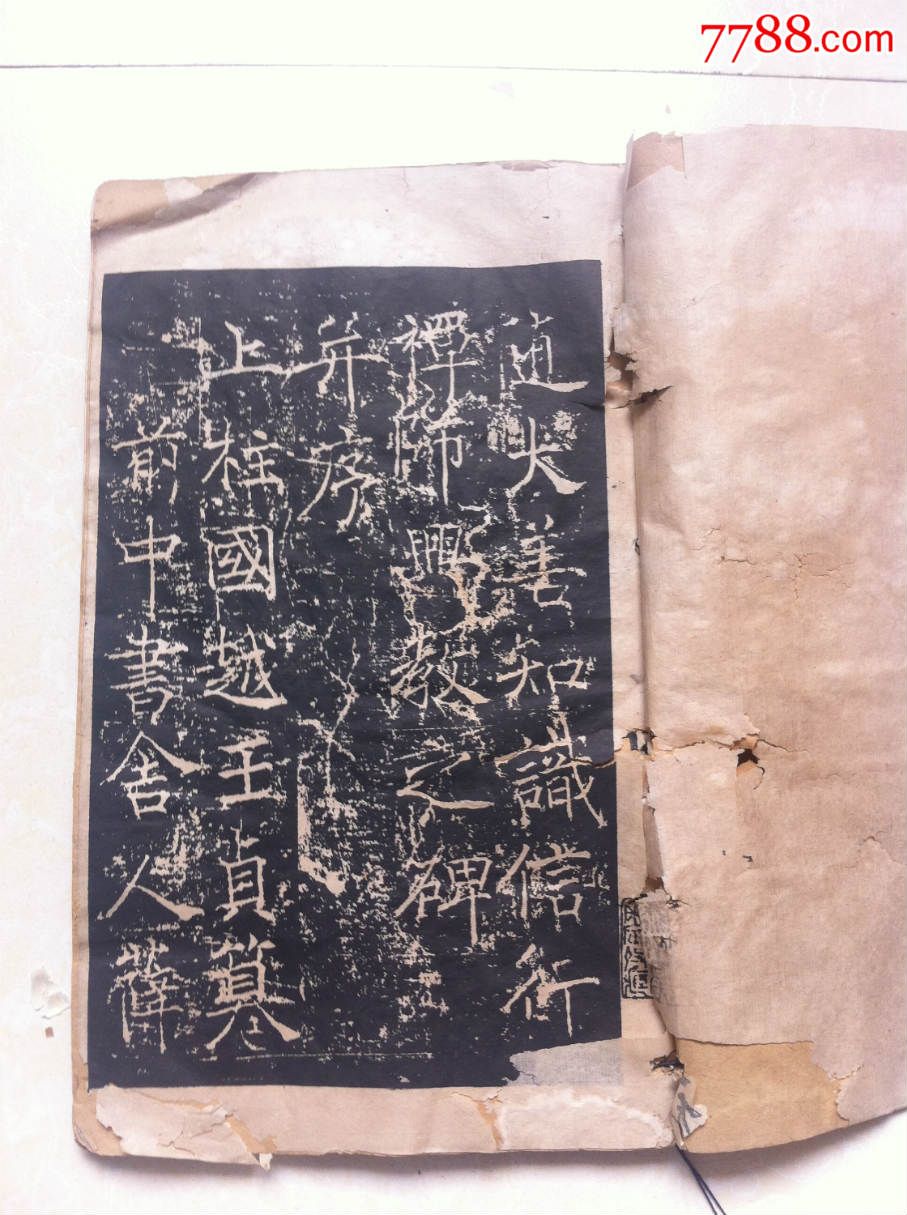 7788.com
隨大善知識信行
禪師興教之碑
并序
上柱國越王貞
前中書舍人薛